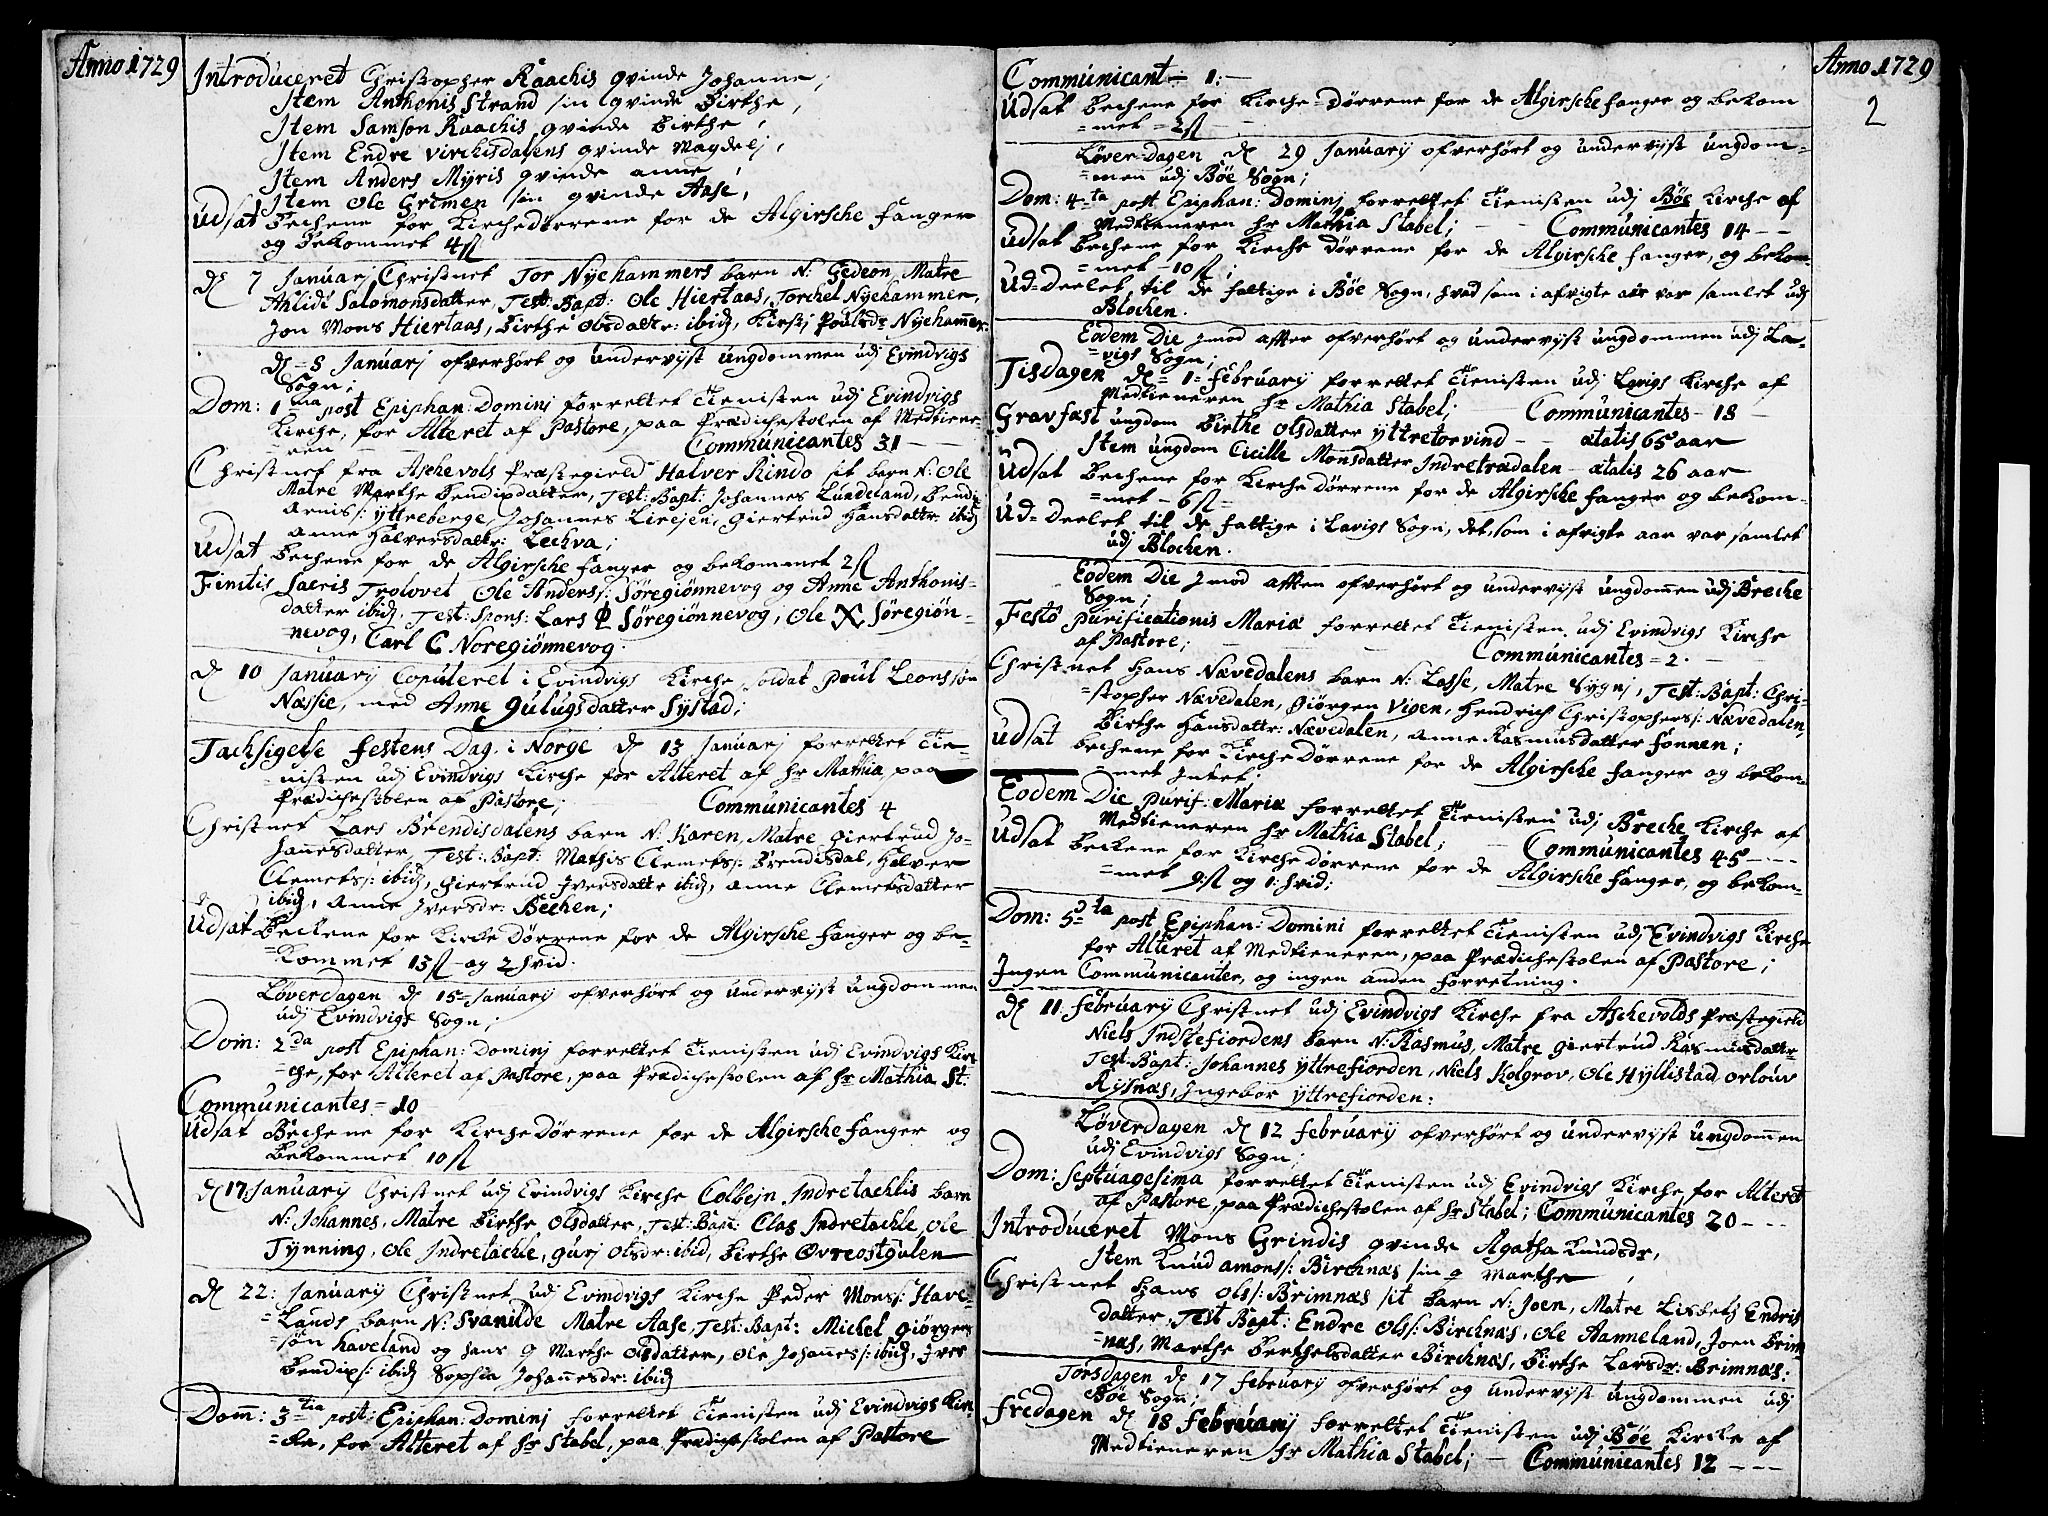 Anno 1729
Introduceret Christopher Raachis qvinde Johanne;
Item Anthonis Strand sin qvinde Birthe,
Item Samson Raachis qvinde Birthe,
Item Endre Virchisdalens qvinde Magdelj,
Item Anders Myris qvinde anne,
Item Ole Grimen sin qvinde Aase,
Udsat Bechene for Kirchedørrene for de Algirsche Fanger
og Bekommet 4 ß
d 7 Januarj Christnet Tor Nyehammers barn N: Gedeon, Matre
Ahlidi Salomonsdatter, Test: Bapt: Ole Hiertaas, Torchel Nyehammer,
Jon Mons Hiertaas, Birthe Olsdattr: ibid, Kirstj Poulsdr Nyehamer:
d 8 Januarj ofverhørt og undervijst ungdommen udj Evindvigs
Sogn;
Dom: 1ma post Epiphan: Dominj forrettet Tienisten udj Evindvigs
Kirche, for Alteret af Pastore, paa Prædichestolen af Medtiene-
ren - Communicantes 31 -
Christnet fra Aschevols Præstegield Halver Rindo sit barn N: Ole
Matre Marthe Bendixdatter, Test: Bapt: Johannes Lundeland, Bendix
Arnis: yttreberge, Johannes Lirejen, Giertrud Hansdattr: ibid
Anne Halversdattr: Lechva;
Udsat Bechene for de Algirsche Fanger og bekommet 2 ß
Finitis Sacris Trolovet Ole Anders: Søregiønnevog og Anne Anthonis-
datter ibid, Test: Spons: Lars Søregiønnevog, Ole X Søregiøn-
nevog, Carl C Noregiønnevog.
d 10 Januarij Copuleret i Evindvigs Kirche, soldat Poul Leonssøn
Næssie, med Anne Gulugsdatter Systad;
Tachsigelse Festens Dag i Norge d 13 Januarj forrettet Tie-
nisten udj Evindvigs Kirche for Alteret af Hr Mathia paa
Prædichestolen af Pastore; Communicantes 4
Christnet Lars Brendisdalens barn N: Karen, Matre Giertrud Jo-
hannesdatter, Test: Bapt: Mathis Clemets: Brendisdal, Halver
Clemets: ibid, Giertrud Iversdattr ibid, Anne Clemetsdatter
ibid, Anne Iversdr: Bechen;
Udsat Beckene for Kirche Dørrene for de Algirsche Fanger og be-
Kommet 13 ß og 2 hvid.
Løverdagen d 15 Januarij ofverhørt og undervijst ungdommen
udj Evindvigs Sogn;
Dom: 2da post Epiphan: Dominj forrettet Tienisten udj Evindvigs Kir-
che, for Alteret af Pastore, paa Prædichestolen af Hr Mathia St:
Communicantes = 10
Udsat Bechene for Kirche Dørrene for de Algirsche Fanger og
Bekommet 10 ß
d 17 Januarij Christnet udj Evindvigs Kirche Colbejn Indretachlis barn
N: Johannes, Matre Birthe Olsdatter, Test: Bapt: Clas Indretachle, Ole
Tynning, Ole Indretachle, Gurj Olsdr: ibid, Birthe Øvreostgulen
d 22: Januarij Christnet udj Evindvigs Kirche Peder Mons: Have-
lands barn N: Svanilde Matre Aase, Test: Bapt: Michel Giørgens
søn haveland og hans q Marthe Olsdatter, Ole Johanes: ibid, Iver
Bendix: ibid Sophia Johanesdr: ibid
Dom: 3tia post: Epiphan: Dominj forrettet Tienisten udj Evindvigs Kir-
-che, for Alteret af Hr Stabel, paa Prædichestolen af Pastore
Anno 1729
2
Communicant - 1:-
Udsat bechene for Kirche-Dørrene for de Algirsche fanger og bekom
=met = 2 ß
Løver-Dagen d 29 Januarij ofverhørt og undervijst ungdom=
=men udj Bøe Sogn;
Dom: 4ta post Epiphan: Dominj forrettet Tienisten udj Bøe Kirche af
Medtieneren Hr Mathia Stabel; - Communicantes 14 - -
Udsat bechene for Kirche Dørrene for de Algirsche fanger, og bekom-
=met - 10 ß;
Ud-Deelet til de fattige i Bøe Sogn, hvad som i afvigte aar var samlet udj
Blochen.
Eodem Die imod aften ofverhørt og undervijst ungdommen udj La-
=vigs Sogn;
Tisdagen d = 1 = Februarij forrettet Tienisten udj Lavigs Kirche af
Medtieneren Hr Mathia Stabel; - Communicantes - 18 -
Gravfæst ungdom Birthe Olsdatter yttretorvind - ætatis 65 aar
Item ungdom Cicille Monsdatter Indretrædalen - ætatis 26 aar
Udsat bechene for Kirche Dørrene for de Algirsche fanger og bekom-
=met - 6 ß =
Ud=Deelet til de fattige i Lavigs Sogn, det, som i afvigte aar var samlet
udj Blochen.
Eodem Die imod afften ofverhørt og undervijst ungdomen udj Breche
Sogn;
Festo Purificationis Mariæ forrettet Tienisten udj Evindvigs Kirche
af Pastore; - Communicantes = 2.
Christnet Hans Nævedalens barn N: Lasse, Matre Sygnj, Test: Bapt: Chri-
=stopher Nævedalen, Giørgen Vigen, Hendrich Christophers: Nævedalen,
Birthe Hansdattr: Nævedalen, Anne Rasmusdatter Fonnen;
Udsat bechene for Kirche Dørrene for de Algirsche fanger og bekom-
met Intet;
Eodem Die Purif: Mariæ forrettet Tienisten udj Breche Kirche af
Medtieneren Hr Mathia Stabel; - Communicantes 45 - - -
Udsat beckene for Kirche Dørrene for de Algirsche fanger, og bekom-
=met 9: ß og 1: hvid;
Dom: 5ta post Epiphan: Domini forrettet Tienisten udj Evindvigs Kirche
for Alteret af Medtieneren, paa Prædichestolen af Pastore;
Ingen Communicantes, og ingen anden forretning.
d 11 Februarij Christnet udj Evindvigs Kirche fra Aschevolds Præstegield
Niels Indrefiordens barn N: Rasmus, Matre Giertrud Rasmusdattr
Test: Bapt: Johannes yttrefiorden, Niels Kolgrov, Ole Hyllistad, Orlouv
Rysnæs, Ingebor yttrefiorden:
Løverdagen d 12 Februarij ofverhørt og undervijst ungdomen
udj Evindvigs Sogn;
Dom: Septuagesima forrettet Tienisten udj Evindvigs Kirche, for Alteret
af Pastore, paa Prædichestolen af Hr Stabel; Communicantes 20 - - -
Introduceret Mons Grindis qvinde Agatha Knudsdr,
Item Knud amons: Birchnæs sin q Marthe
Christnet Hans Ols: Brimnæs sit barn N: Joen, Matre Lisbeth Endris
datter, Test Bapt: Endre Ols: Birchnæs, Ole Aanneland, Joen Brim-
=næs, Marthe Berthelsdatter Birchnæs, Birthe Larsdr: Brimnæs;
Torsdagen d 17 Februarij ofverhørt og undervijst ungdommen udj
Bøe Sogn;
Fredagen d 18 Februarij forrettet Tienisten udj Bøe Kirche af
Medtieneren Hr Mathia Stabel; - Communicantes 12 - - -